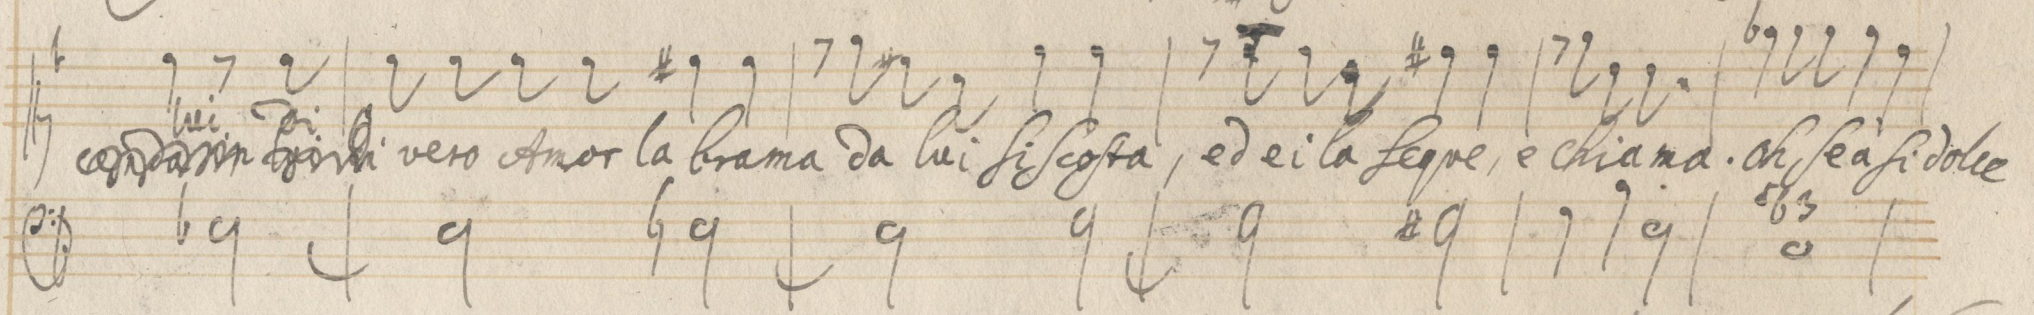 lui di
vero Amor la brama da lui si scosta, ed ei la segue, e chiama. Ah, se a si dolce
563